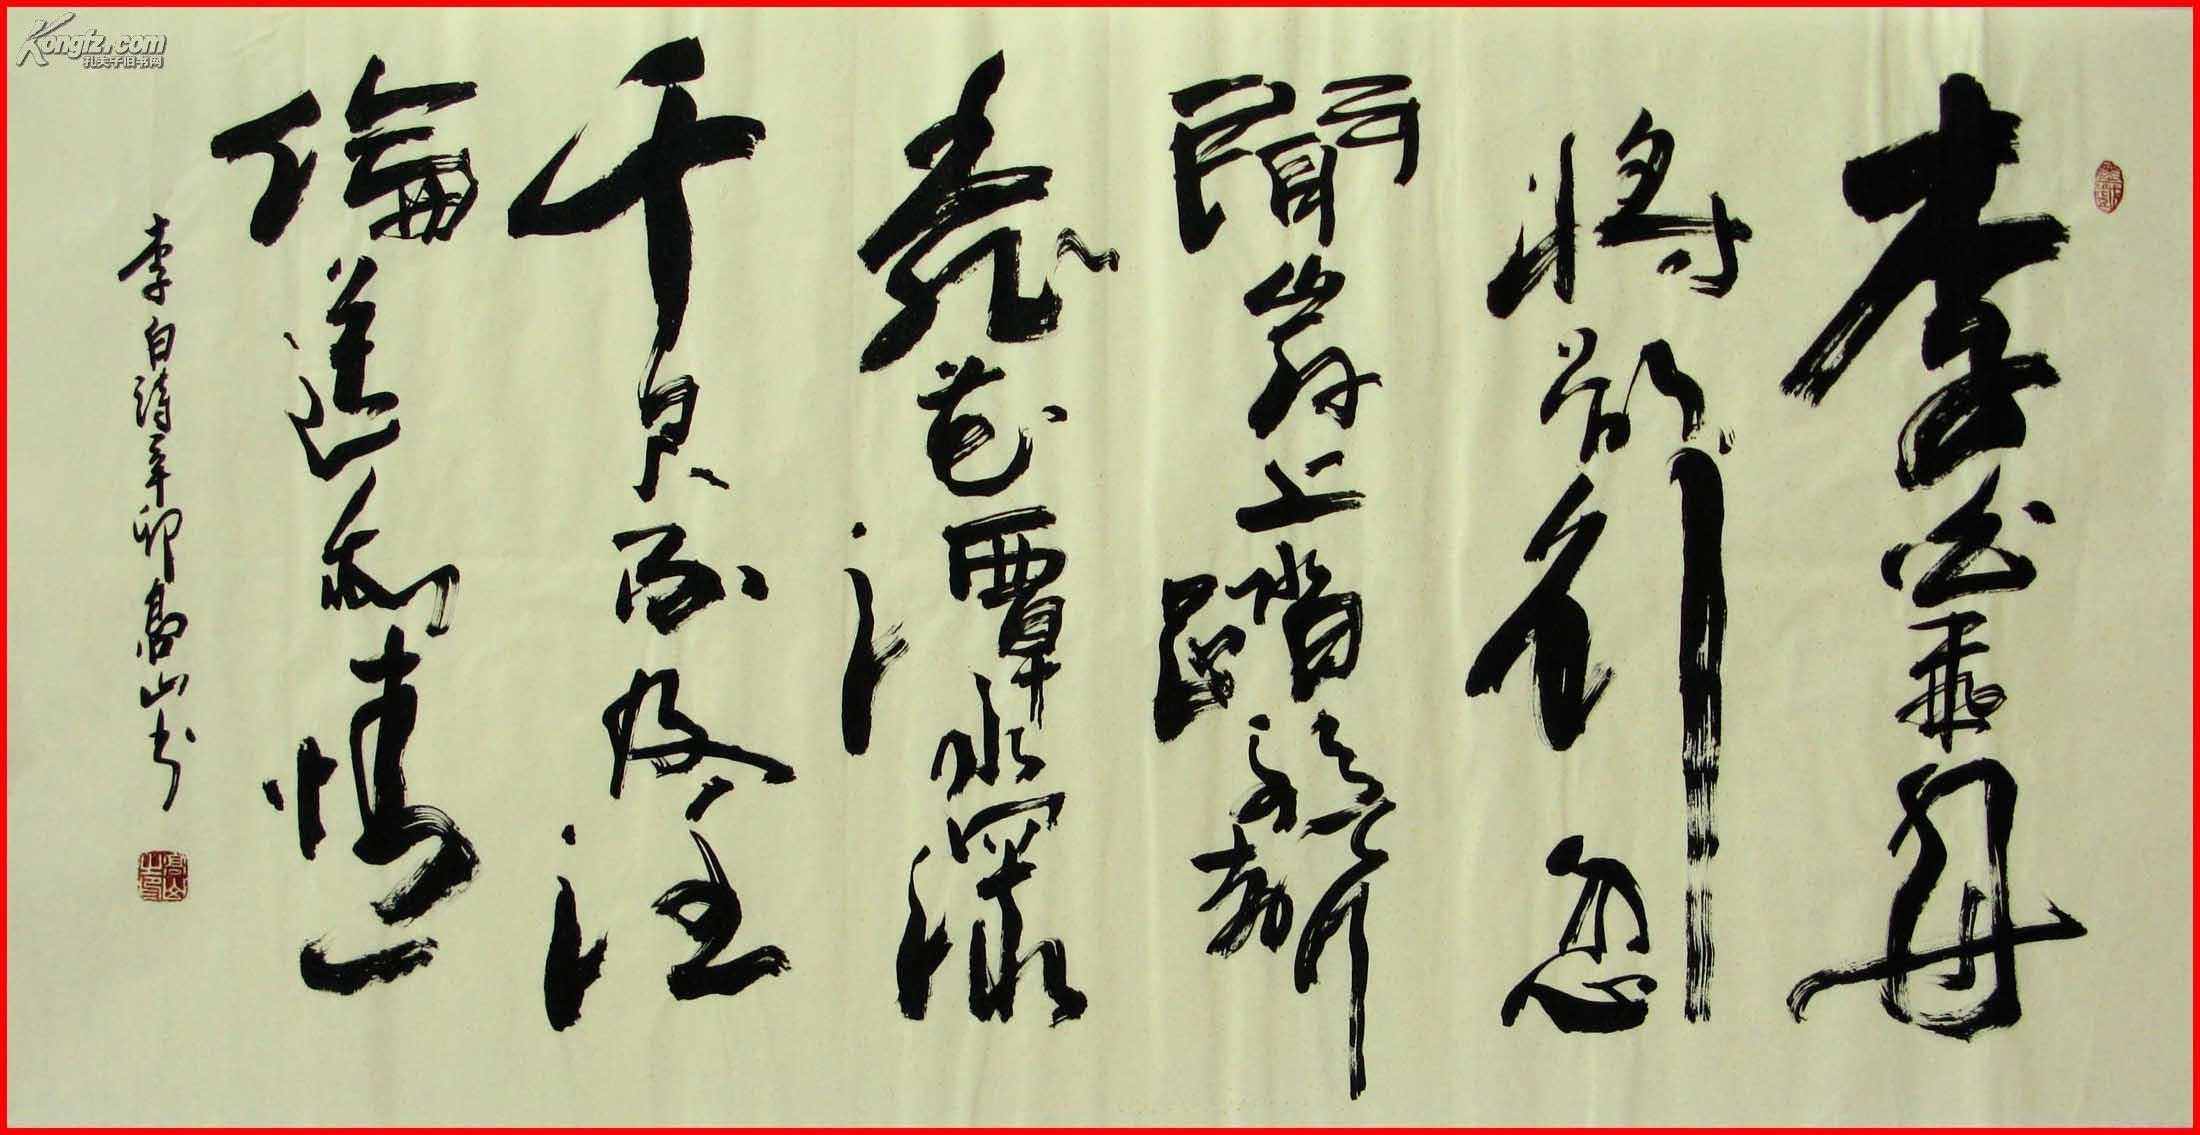 李白乘舟
將欲行忽
聞岸上踏歌聲
桃花潭水深
千尺不及汪
倫送我情
李白詩辛卯高山书
Kongfz.com
孔夫子旧书网